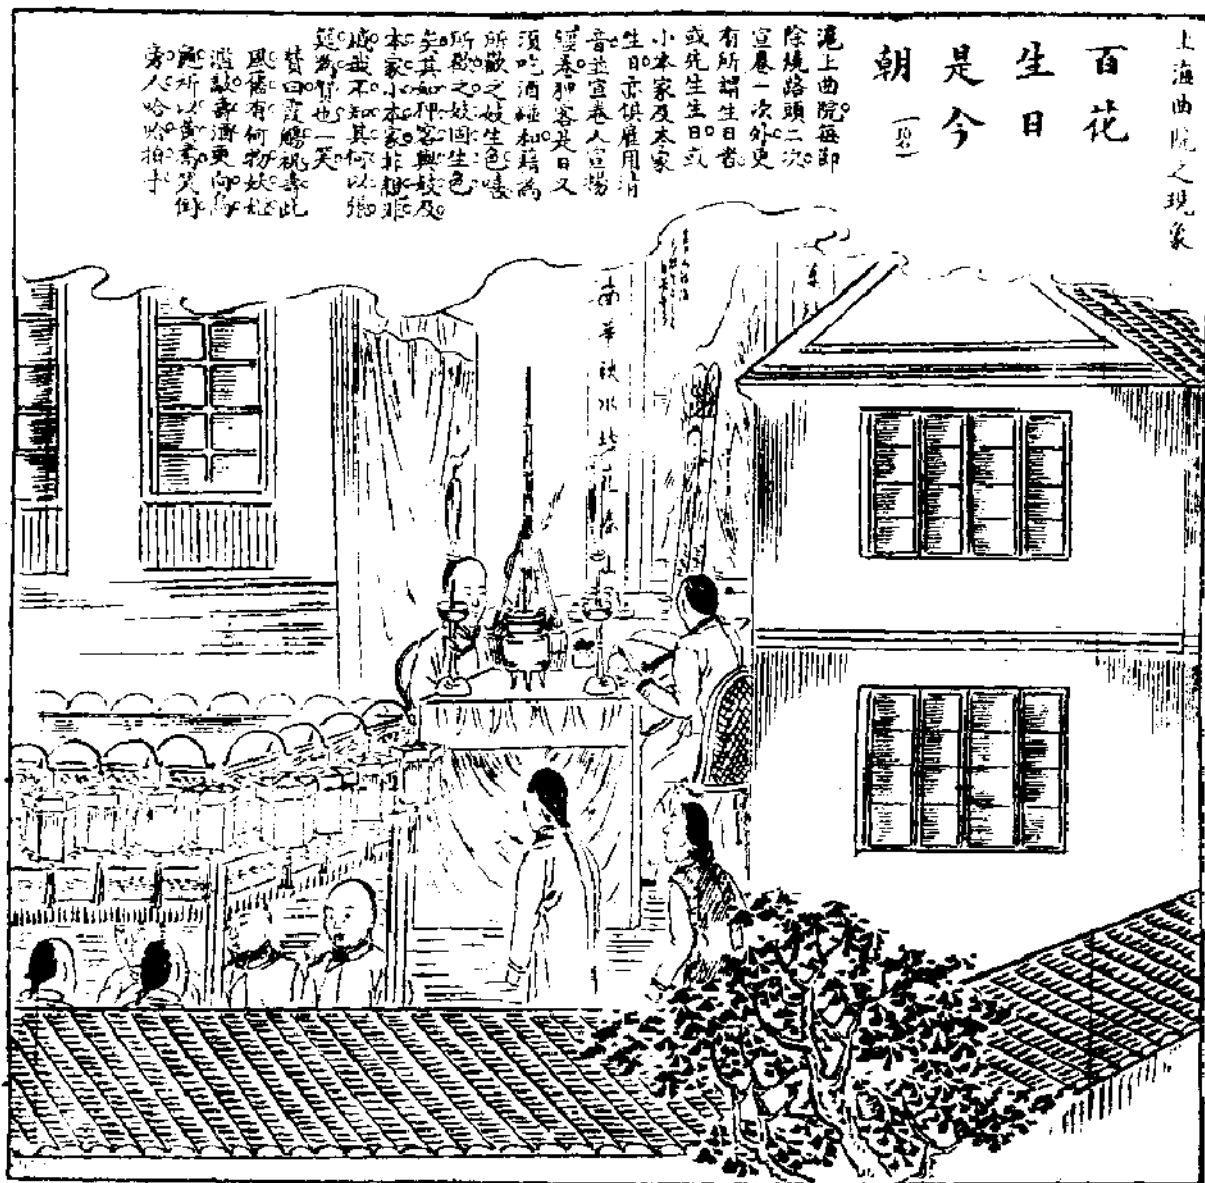 上海曲院之現象
百花
生日
是今
朝
滬上曲院每節
除燒路頭二次
宣卷一次外更
有所謂生日者
或先生生日或
小本家及本家
生日亦俱雇用清
音並宣卷人宣揚
寶卷狎客是日又
須吃酒碰和藉為
所歡之妓生色噫
所歡之妓固生色
矣其如狎客與妓及
本家小本家非親非
戚我不知其何以張
筵為賀也一笑
贊曰霞觴祝壽此
風舊有何物妖姬
濫 壽酒更向烏
龜 所以黃 笑倒
旁人哈哈拍手
南華秋水北苑春山